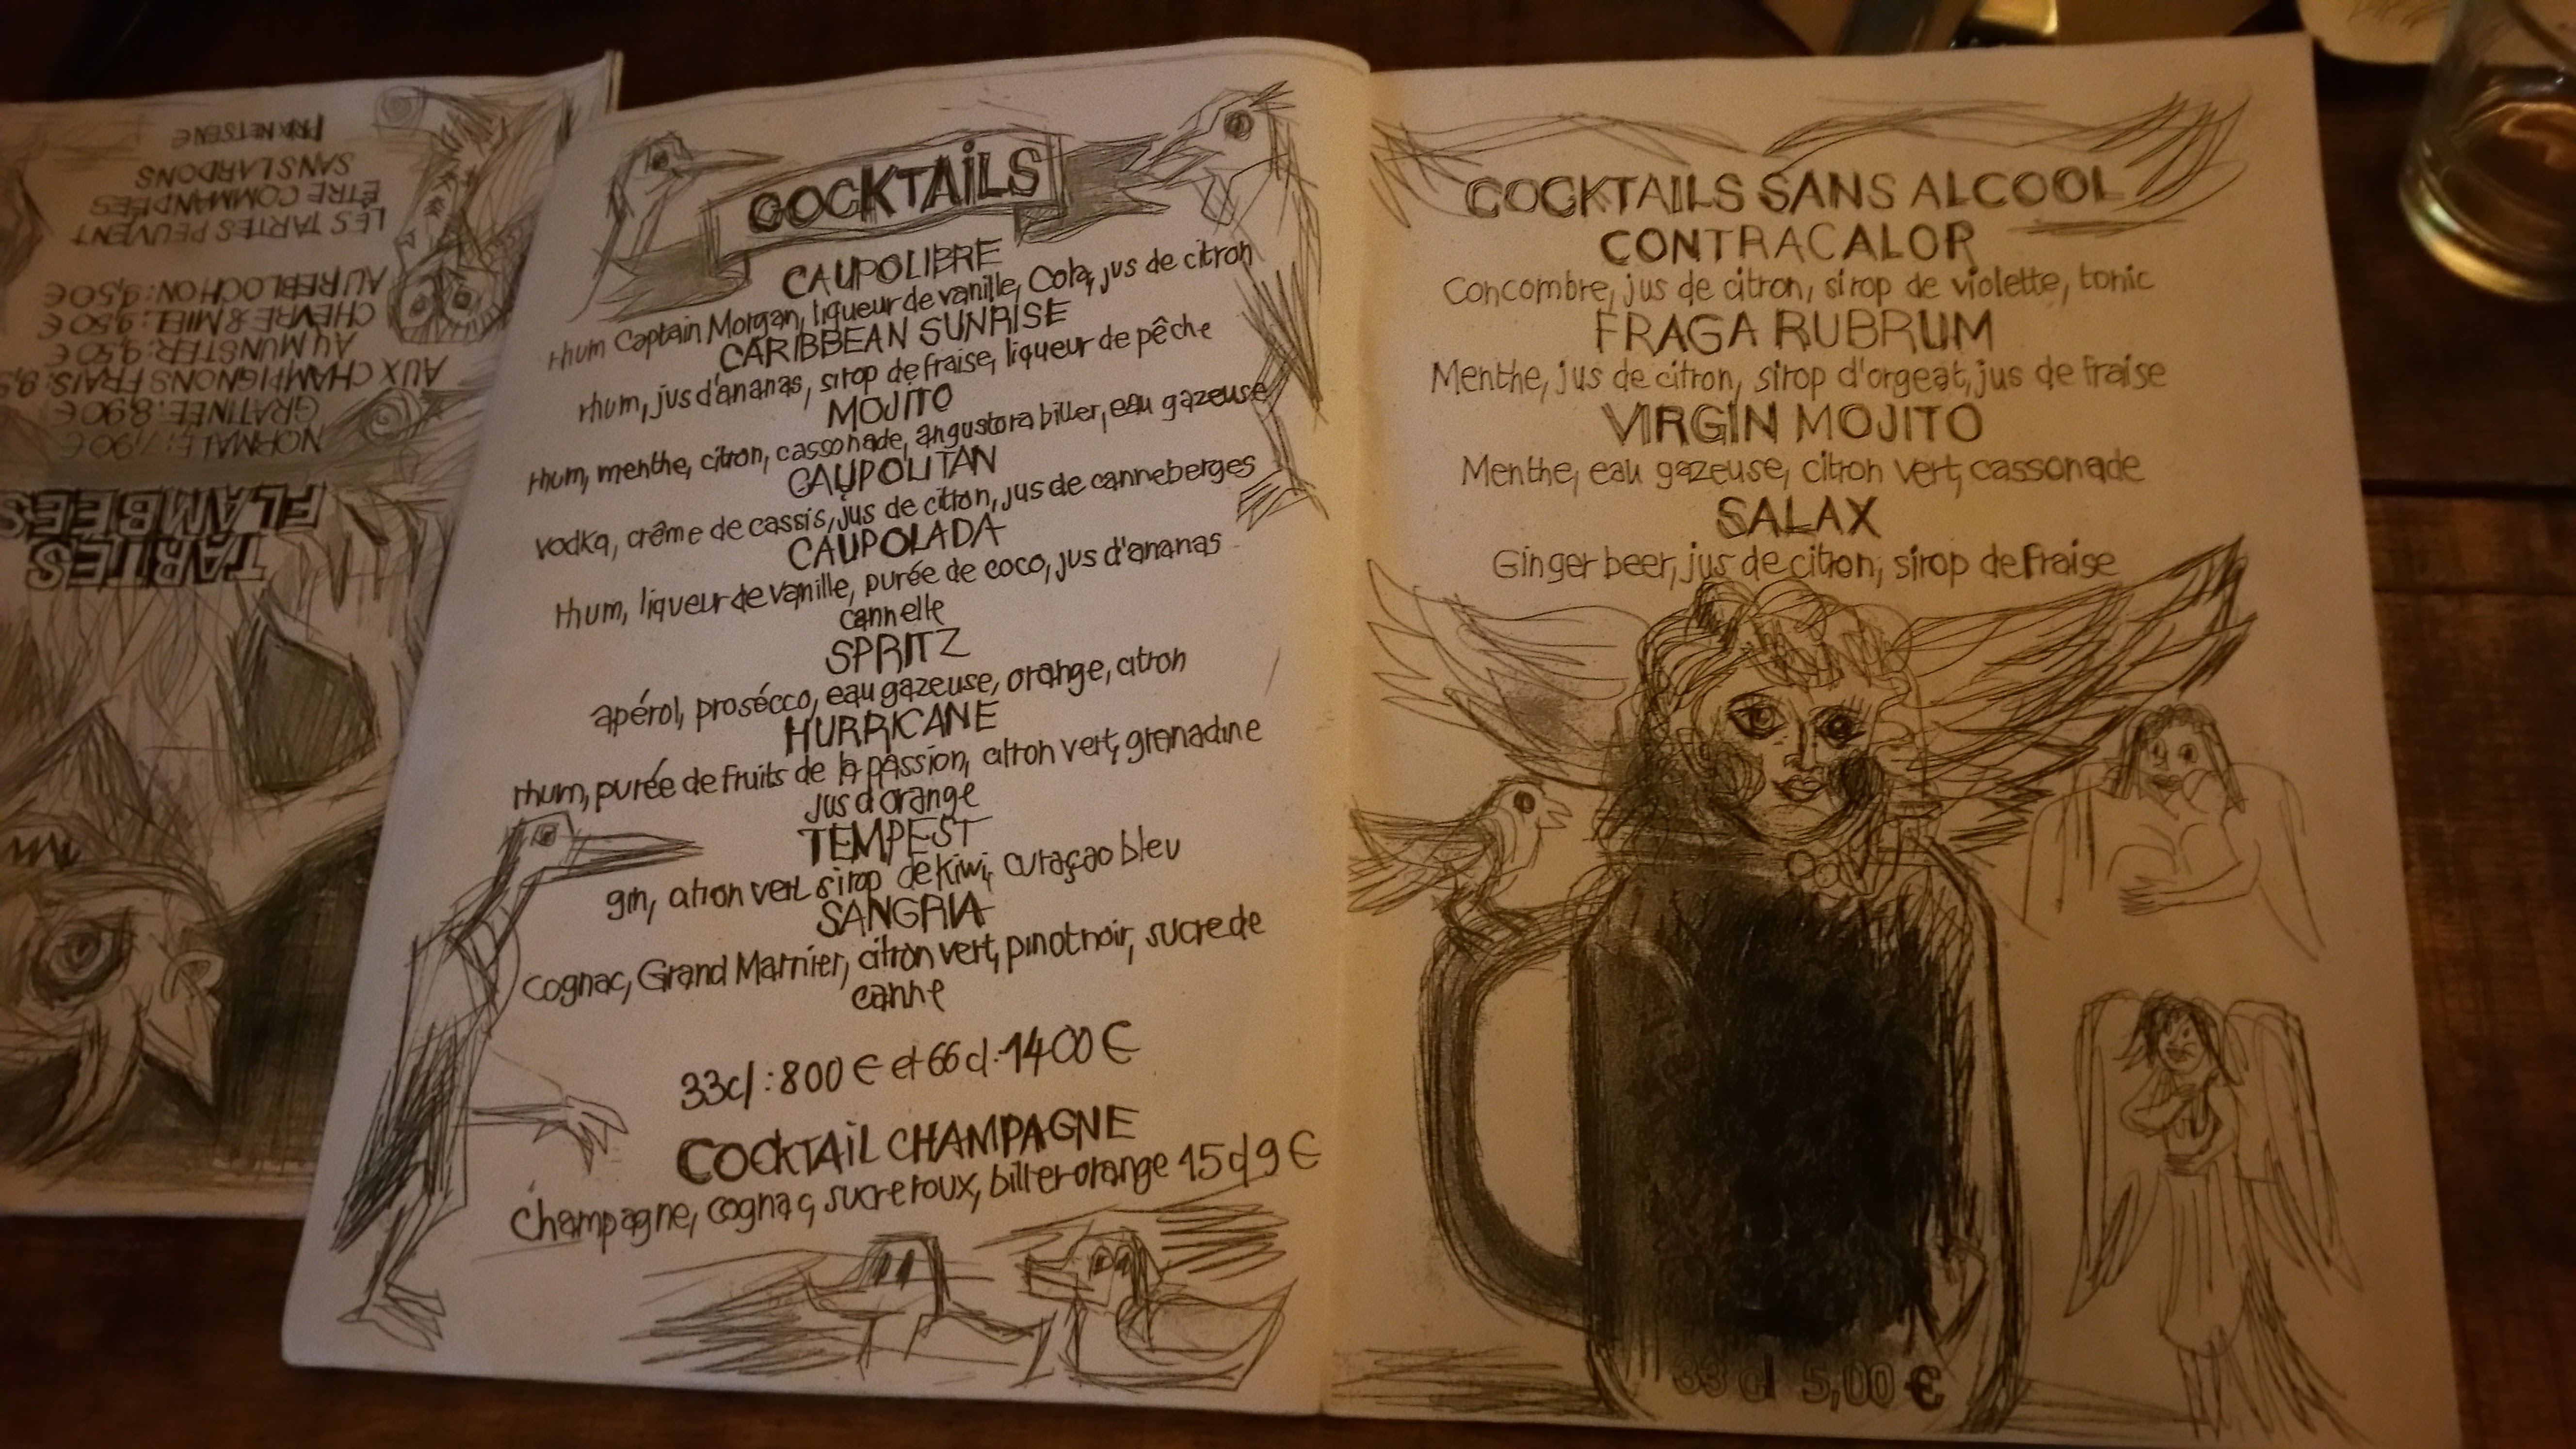 COCKTAILS
CAUPOLIBRE
rhum Captain Morgan, liqueur de vanille, Cola, jus de citron
CARIBBEAN SUNRISE
rhum, jus d'ananas, sirop de fraise, liqueur de pêche
MOJITO
rhum, menthe, citron, cassonade, angustora bitter, eau gazeuse
CAUPOLITAN
vodka, crême de cassis, jus de citron, jus de canneberges
CAUPOLADA
rhum, liqueur de vanille, purée de coco, jus d'ananas
cannelle
SPRITZ
apérol, prosécco, eau gazeuse, orange, citron
HURRICANE
rhum, purée de fruits de la passion, citron vert, grenadine
jus d'orange
TEMPEST
gin, citron vert sirop de kiwi, curaçao bleu
SANGRIA
Cognac, Grand Marnier, citron vert, pinot noir, sucre de
canne
33cl : 800 € et 66cl : 1400 €
COCKTAIL CHAMPAGNE
Champagne, cognac, sucre roux, bitter orange 15cl 9 €
COCKTAILS SANS ALCOOL
CONTRACALOR
Concombre, jus de citron, sirop de violette, tonic
FRAGA RUBRUM
Menthe, jus de citron, sirop d'orgeat, jus de fraise
VIRGIN MOJITO
Menthe, eau gazeuse, citron vert, cassonade
SALAX
Ginger beer, jus de citron, sirop de fraise
33 cl 5,00 €
TARTES
FLAMBÉES
NORMALE : 7,90 €
GRATINÉE : 8,90 €
AUX CHAMPIGNONS FRAIS : 9,5
AU MUNSTER : 9,50 €
CHÈVRE & MIEL : 9,50 €
AU REBLOCHON : 9,50 €
LES TARTES PEUVENT
ÊTRE COMMANDÉES
SANS LARDONS
PRIX NETS EN €